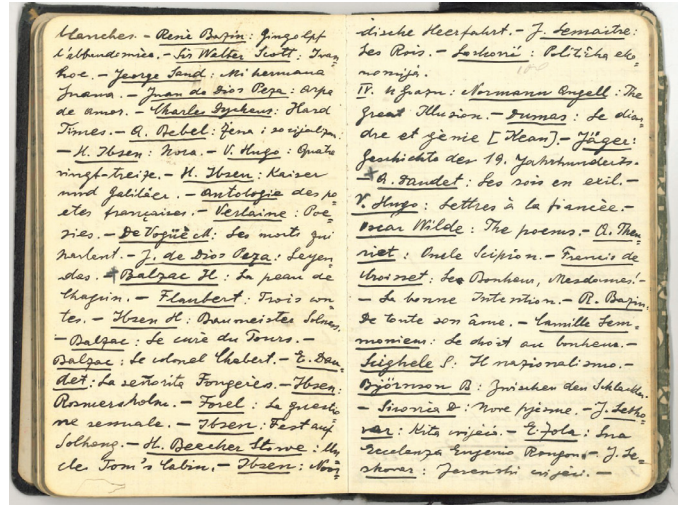 blanches. - René Bazin: Gingolpf
l'abbandonnèe. - Sir Walter Scott: Ivan
hoe. - George Sand: Mi hermana
Juana. - Juan de Dios Peza: Arpa
de amor. - Charles Dyckens: Hard
Times. - A. Bebel: Žena i socijalizm.
- H. Ibsen: Nora. - V. Hugo: Quatre
vingt-treize. - H. Ibsen: Kaiser
und Galiläer. - Antologie des po
etes françaises. - Verlaine: Poe
sies. - De Vogüè M: Les morts qui
parlent. - J. de Dios Peza: Leyen
das. - Balzac H: La peau de
Chagrin. - Flaubert: Trois con
tes. - Ibsen H: Baumeister Solness.
- Balzac: Le curè du Tours. -
Balzac: Le colonel Chabert. - E. Dau
det: La señorita Fougères. - Ibsen:
Rosmersholm. - Forel: La questio
ne sessuale. - Ibsen: Fest auf
Solhaug. - H. Beecher Stowe: Un
cle Tom's Cabin. - Ibsen:
dische Heerfahrt. - J. Lemaitre:
Les Rois. - Lorković: Politička eko
nomija.
IV. u Grazu: Normann Angell: The
great Illusion. - Dumas: Le
dre et gènie [Kean]. - Jäger:
Geschichte des 19. Jahrhunderts. -
A. Daudet: Les rois en exil. -
V. Hugo: Lettres à la fiancèe. -
Oscar Wilde: The poems. - A. Theu
riet: Oncle Scipion. - Francis de
Croisset: Le Bonheur, Mesdames! -
- La bonne Intention. - R. Bazin:
De toute son âme. - Camille Lem
monier: Le droit au bonheur. -
Sighele S: Il nazionalismo. -
Björnson B: Zwischen den Schlachten.
- Sisonia D: Nove pjesme. - J. Lesko
var: Kita cvijeća. - E. Zola: Sua
Eccelenza Eugenio Rougon. - J. Le
skovar: Jesenski cvijeci. -